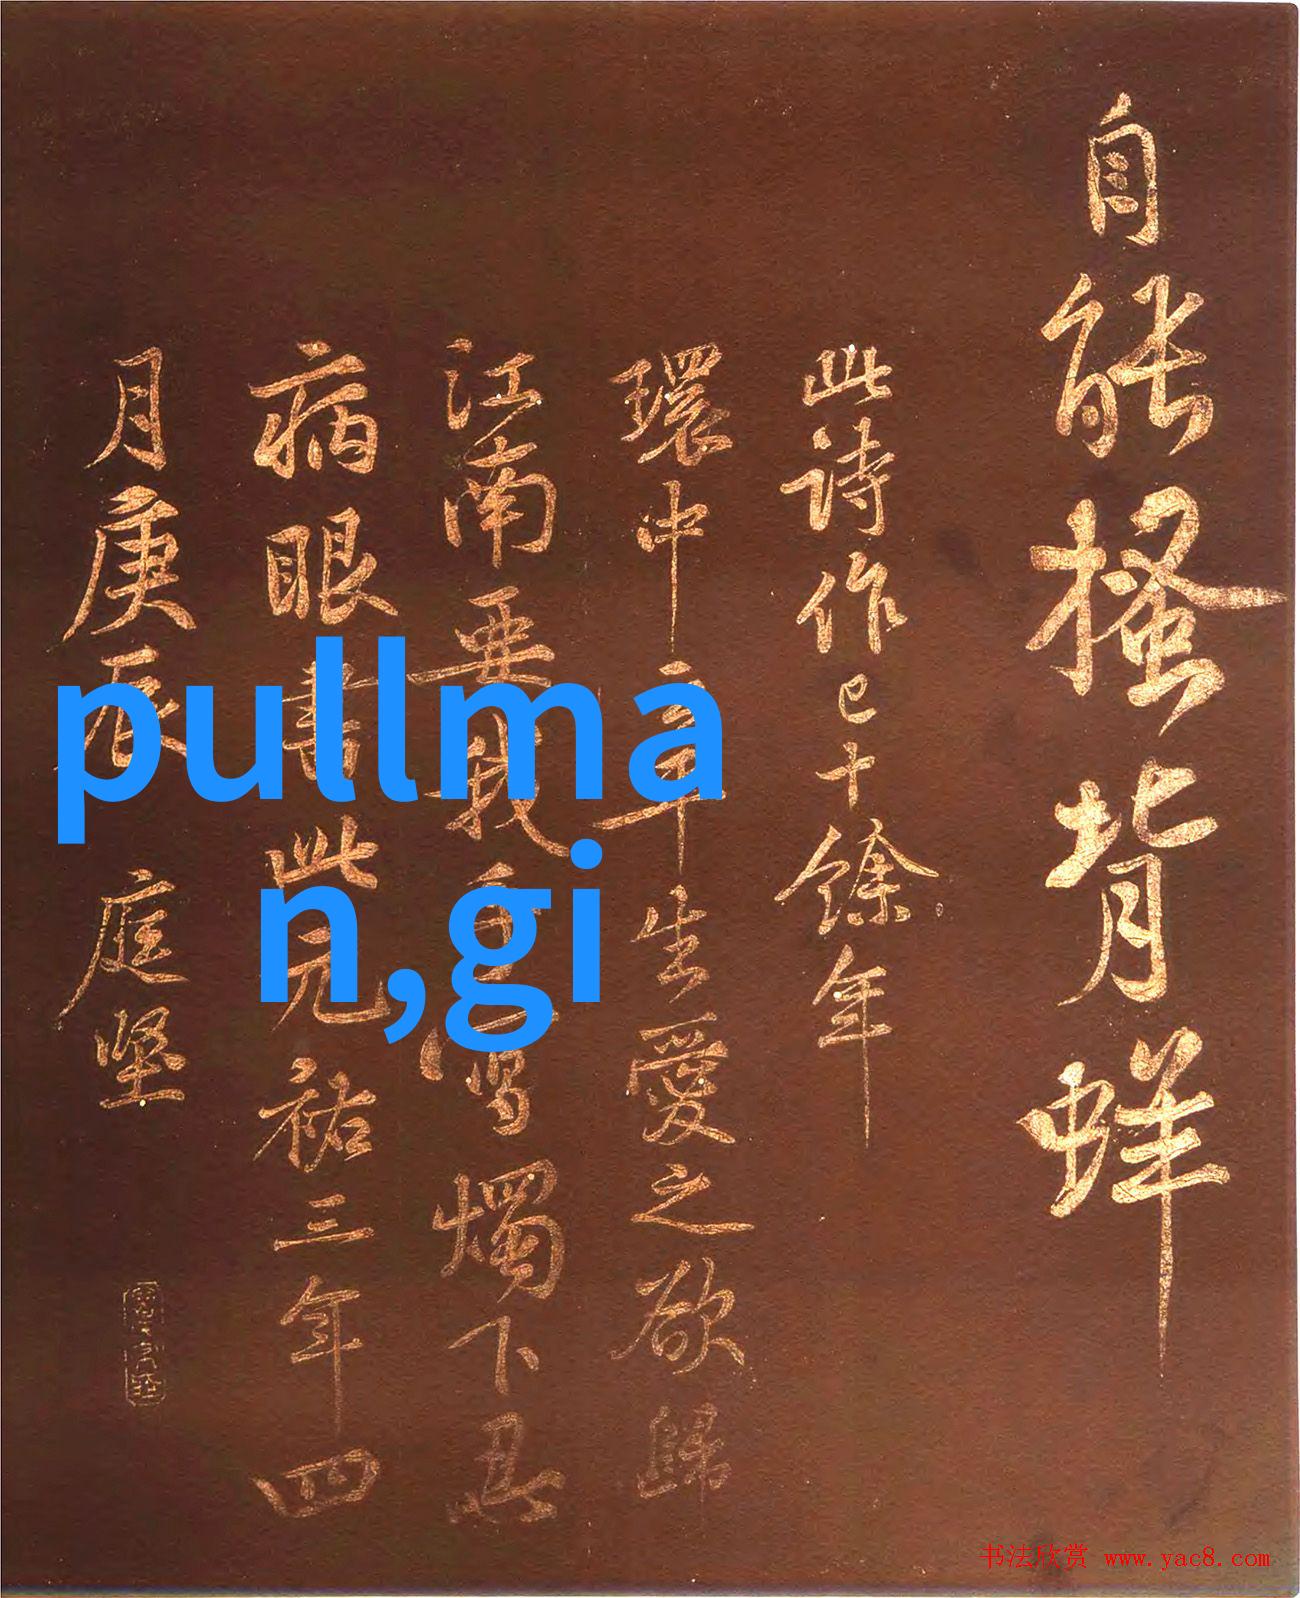 自能搔背蛘
此诗作已十餘年
環中三年生愛之欲歸
江南要我手寫燭下忍
病眼書此元祐三年四
月庚辰 庭堅
pullma
n,gi
书法欣赏 www.yac8.com